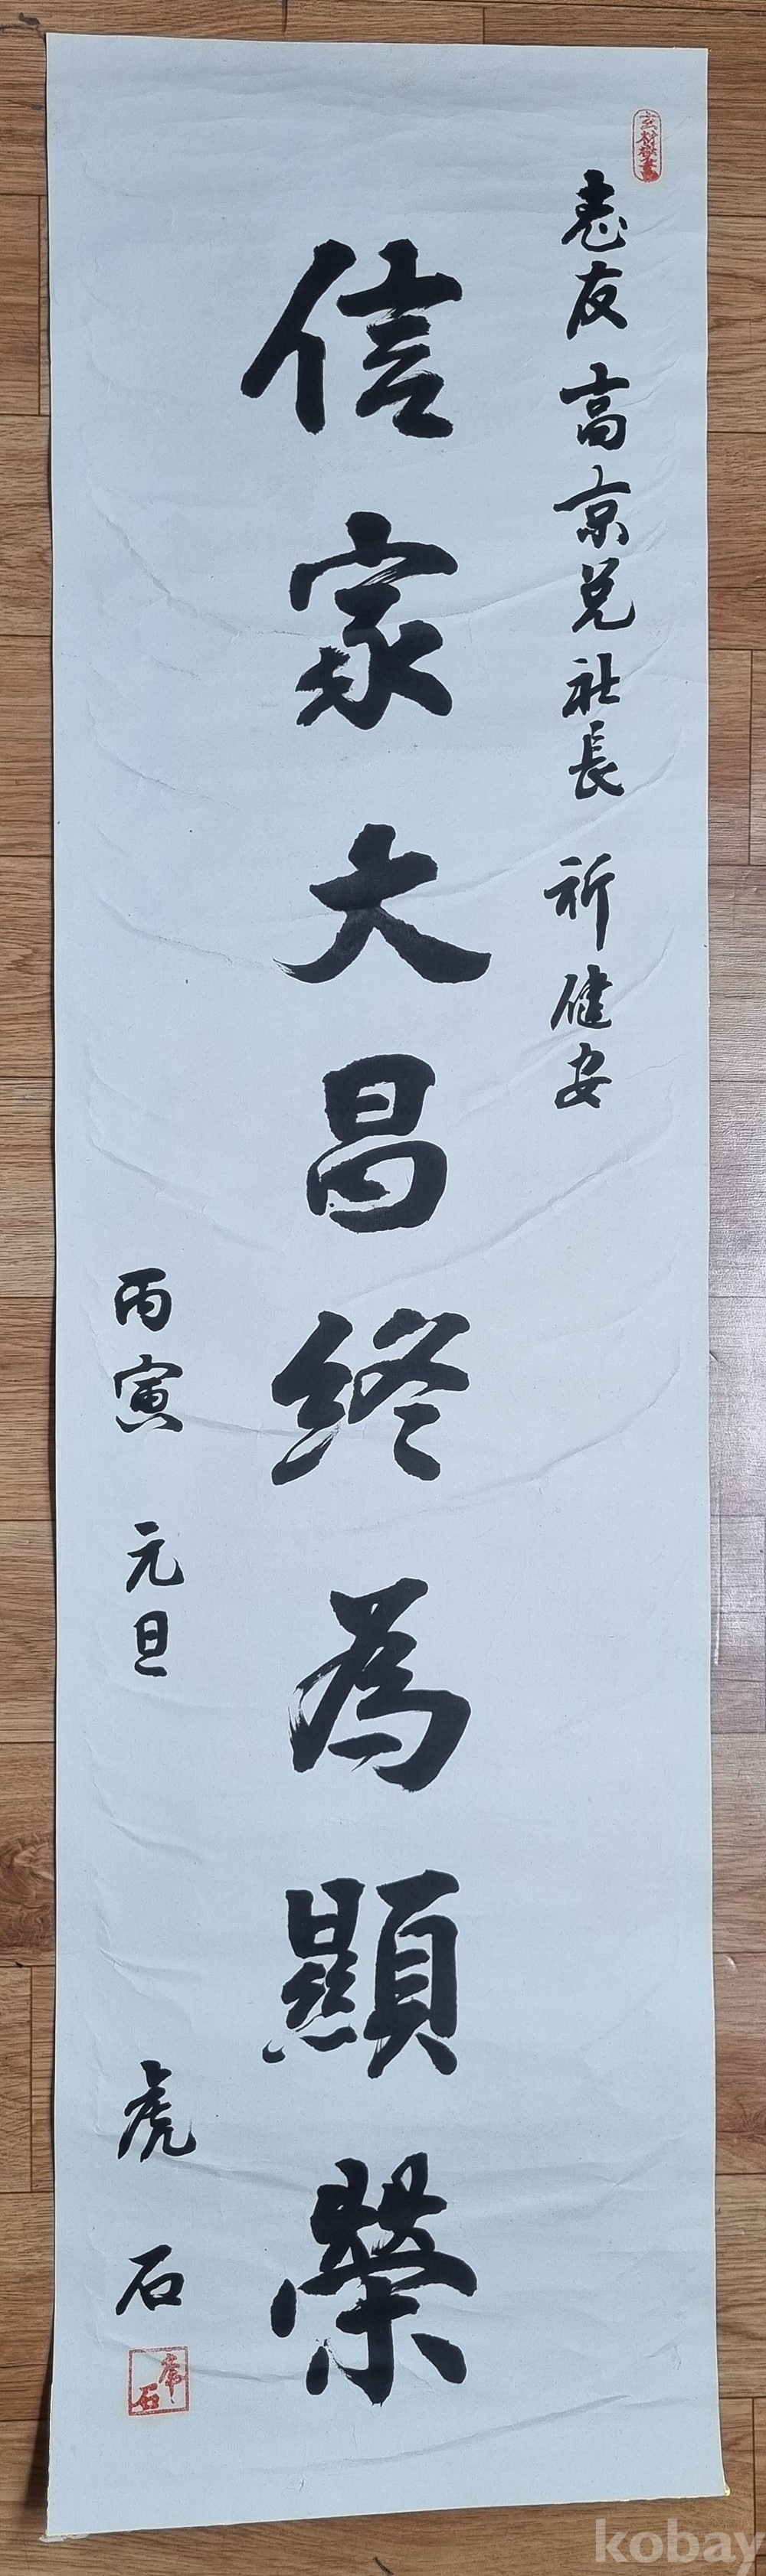 惠友 高京兌社長 祈健安
信家大昌終為顯榮
丙寅 元旦
虎石
虎石
kobay